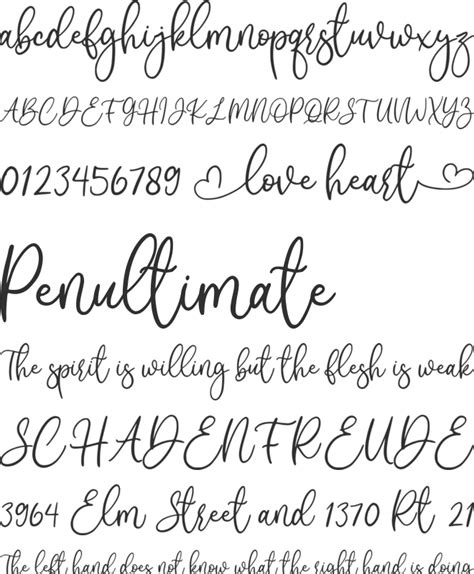 abcdefghijklmnopqrstuvwxyz
ABCDEFGHIJKLMNOPQRSTUVWXYZ
0123456789 love heart
Penultimate
The spirit is willing but the flesh is weak
SCHADENFREUDE
3964 Elm Street and 1370 Rt 21
The left hand does not know what the right hand is doing